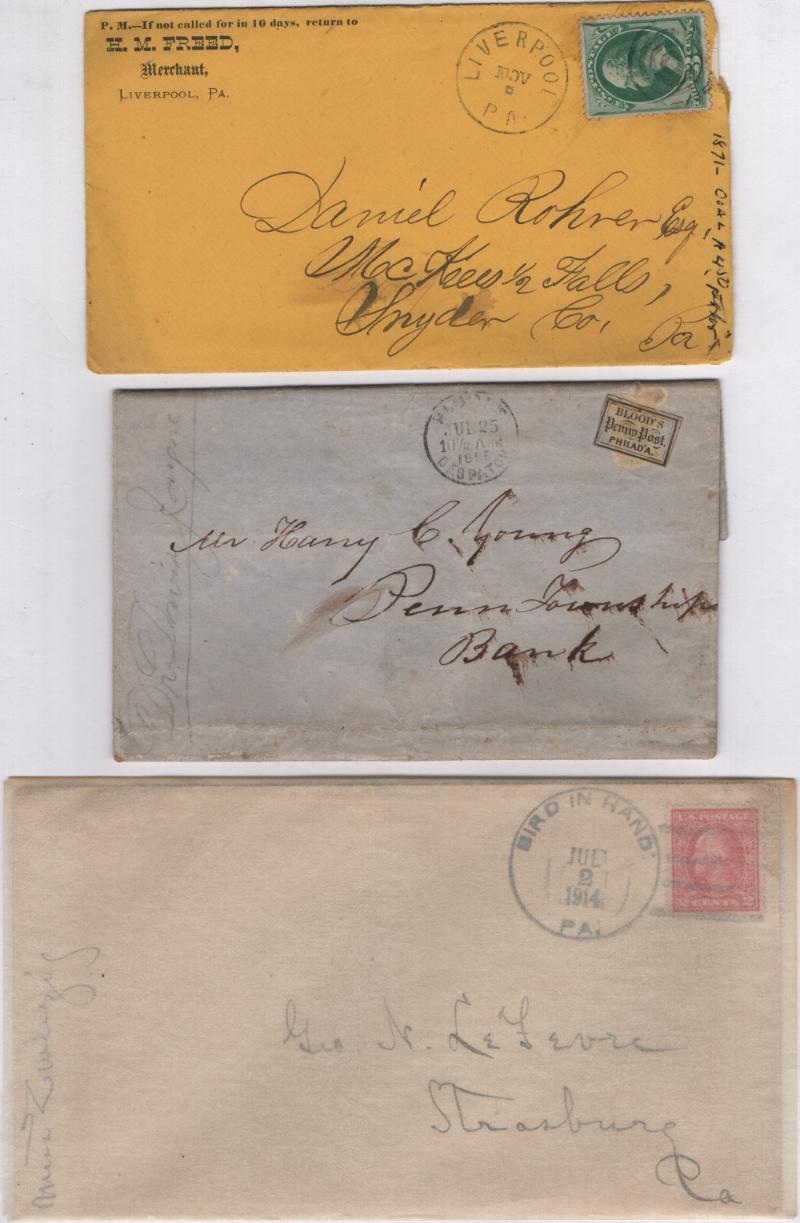 P. M.—If not called for in 10 days, return to
H. M. FREED,
Merchant,
LIVERPOOL, PA.
LIVERPOOL
NOV
PA.
Daniel Rohrer Esq,
McKees ½ Falls,
Snyder Co,
Pa
1871-
DESPATCH
25
BLOOD'S
Penny Post.
PHILAD'A.
Mr Harry C. Young
Penn Township
Bank
BIRD IN HAND.
JUL
2
1914
PA.
U.S. POSTAGE
2 CENTS 2
Geo. N. LeFevre
Strasburg
Pa
Miss